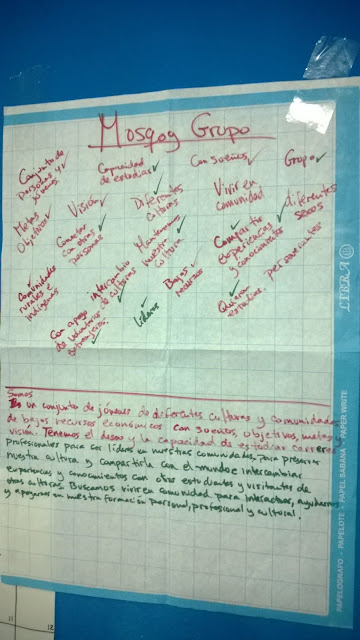 Mosqoy Grupo
Conjunto de personas y jóvenes ✓
Capacidad de estudiar ✓
Con sueños ✓
Grupo ✓
Metas
Objetivos ✓
Visión ✓
Diferentes culturas ✓
Vivir en comunidad
diferentes sexos
Conectar con otras personas ✓
Mantenemos nuestra cultura ✓
Compartir experiencias y conocimientos ✓
Comunidades rurales e indígenas ✓
Con apoyo de voluntarios
intercambio de culturas
líderes ✓
Bajos recursos ✓
Quieren estudiar.
Somos
Es un conjunto de jóvenes de diferentes culturas y comunidades
de bajos recursos económicos con sueños, objetivos, metas
visión. Tenemos el deseo y la capacidad de estudiar carreras
profesionales para ser líderes en nuestras comunidades, para preservar
nuestra cultura y compartirla con el mundo e intercambiar
experiencias y conocimientos con otros estudiantes y visitantes de
otras culturas. Buscamos vivir en comunidad para interactuar, ayudarnos
y apoyarnos en nuestra formación personal, profesional y cultural.
LIBRA
PAPELOGRAFO - PAPELOTE - PAPEL SABANA - PAPER WRITE
11
12